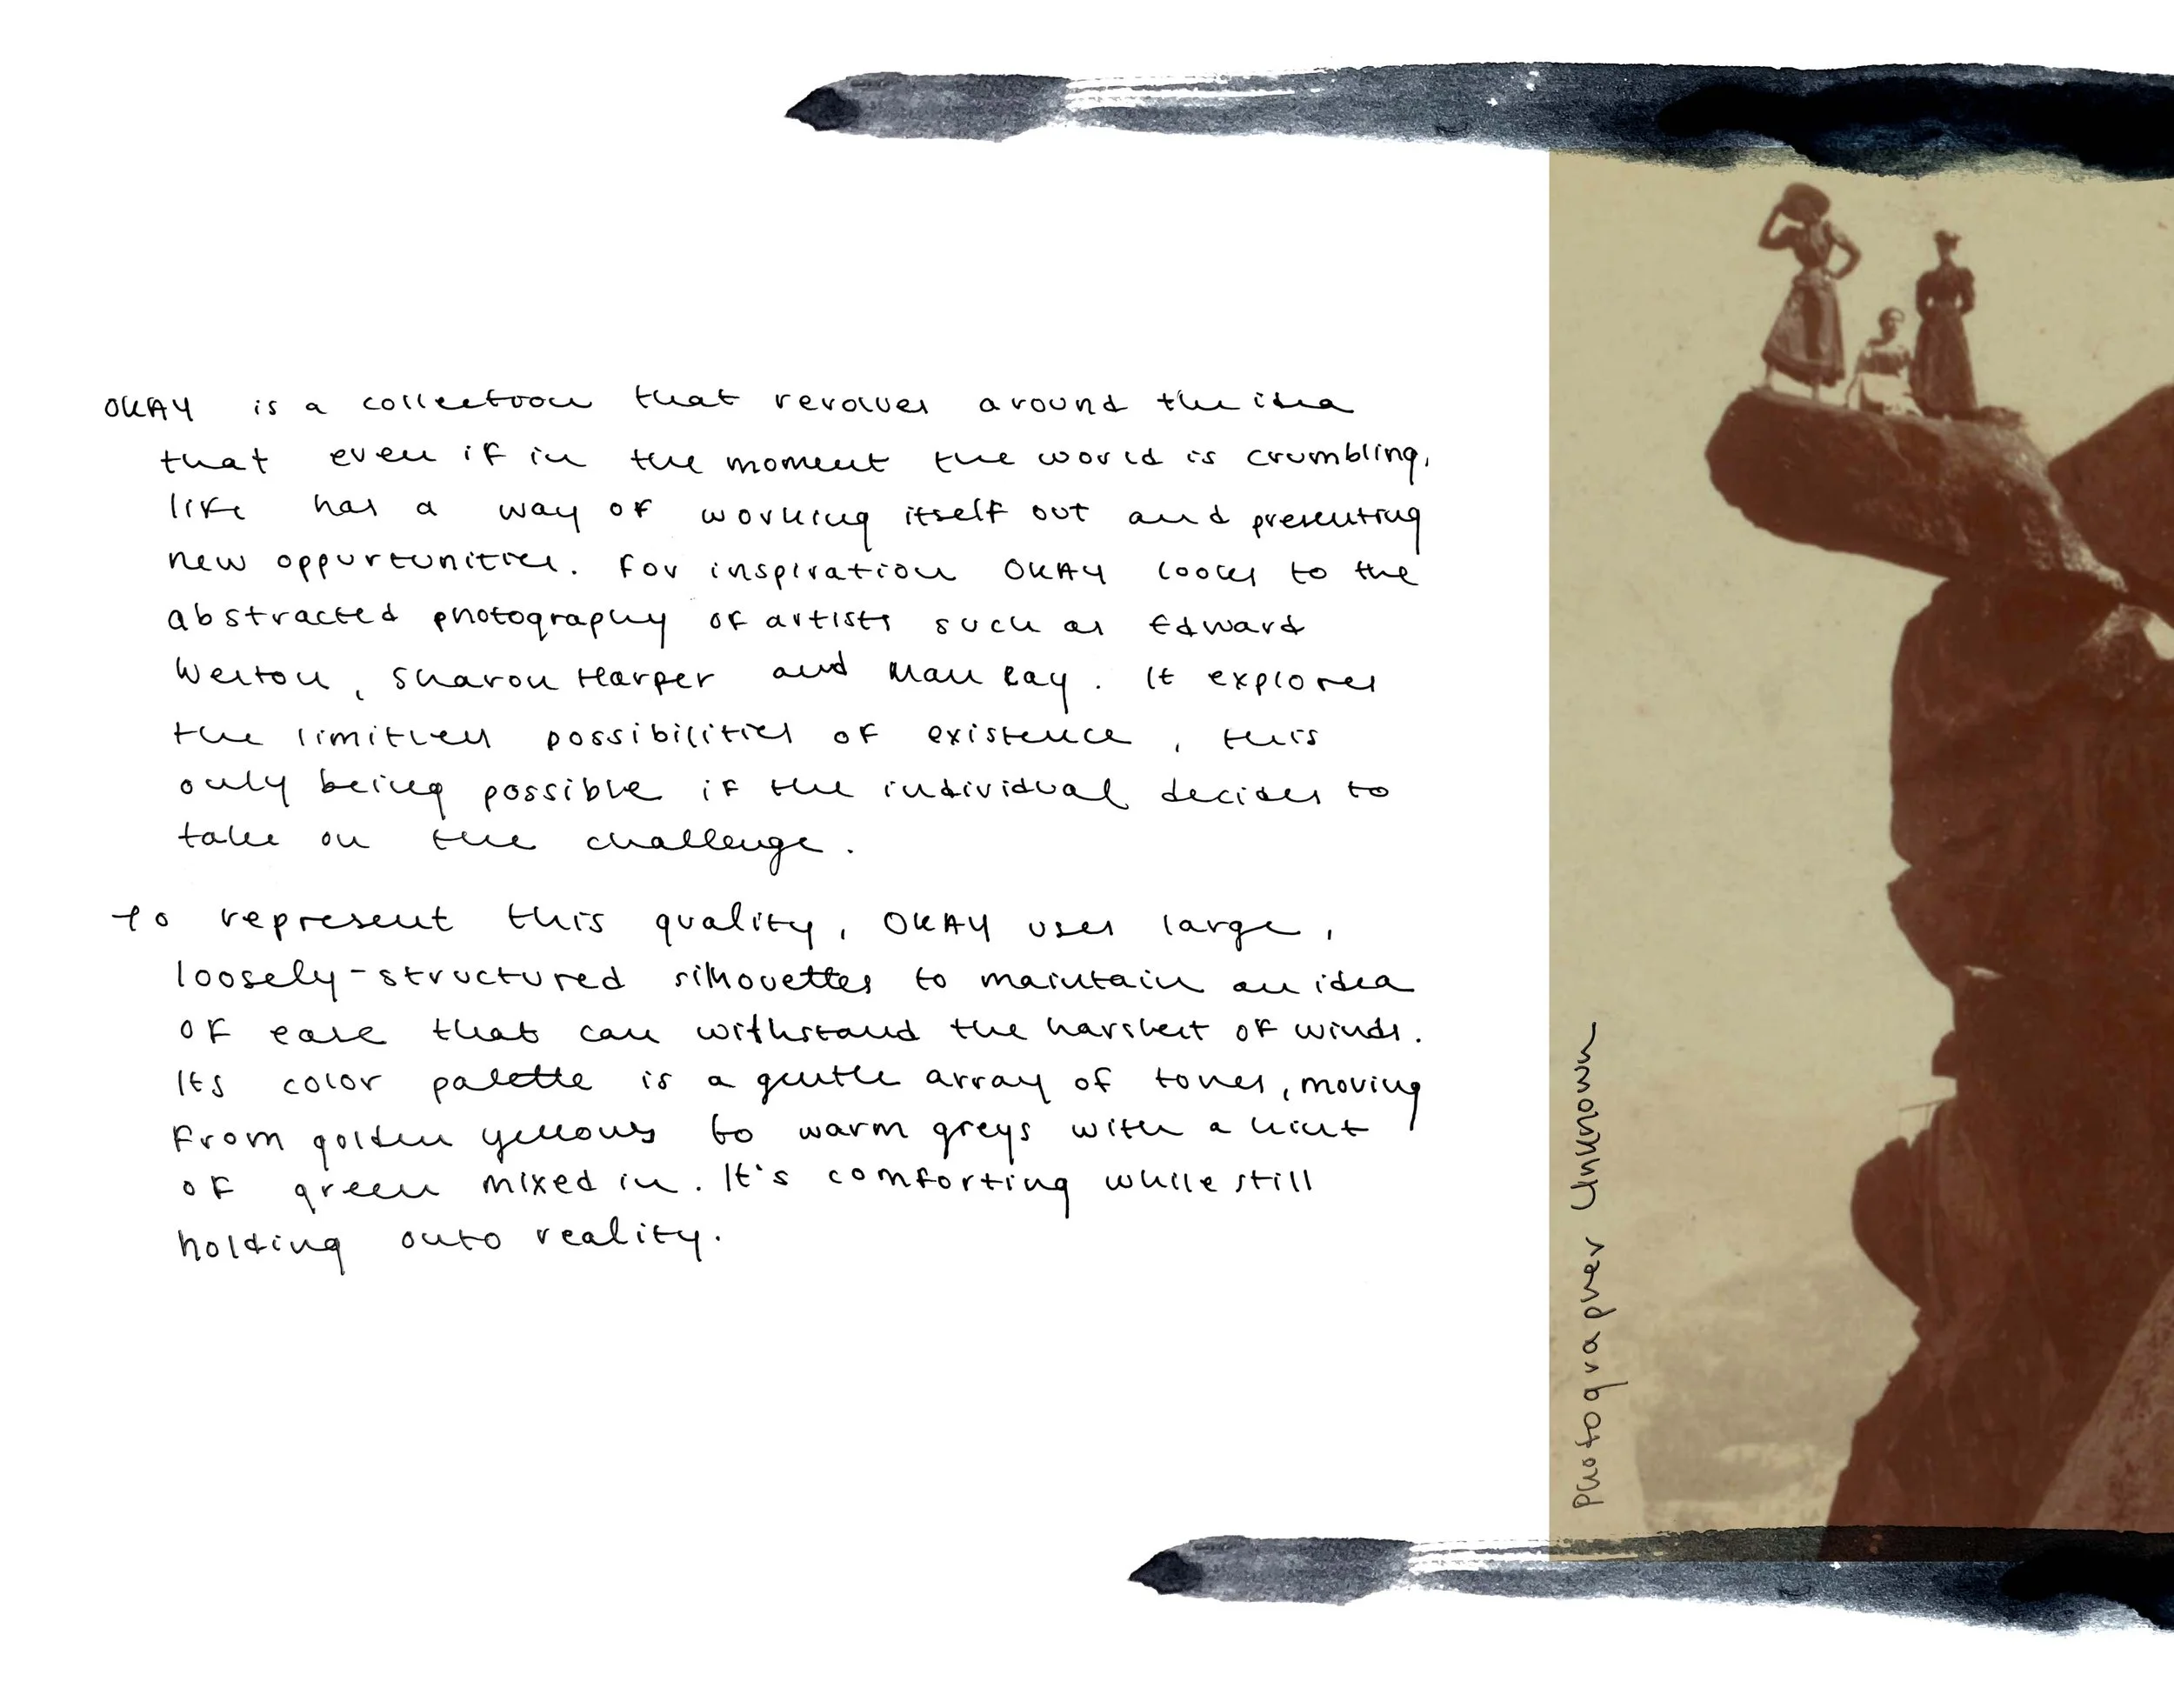 OKAY is a collection that revolves around the idea
that even if in the moment the world is crumbling,
life has a way of working itself out and presenting
new oppurtunities. For inspiration OKAY looks to the
abstracted photography of artists such as Edward
Weston, Sharon Harper and Man Ray. It explores
the limitless possibilities of existence, this
only being possible if the individual decides to
take on the challenge.
To represent this quality, OKAY uses large,
loosely-structured silhouettes to maintain an idea
of ease that can withstand the harshest of winds.
Its color palette is a gentle array of tones, moving
from golden yellows to warm greys with a hint
of green mixed in. It's comforting while still
holding onto reality.
Photographer Unknown